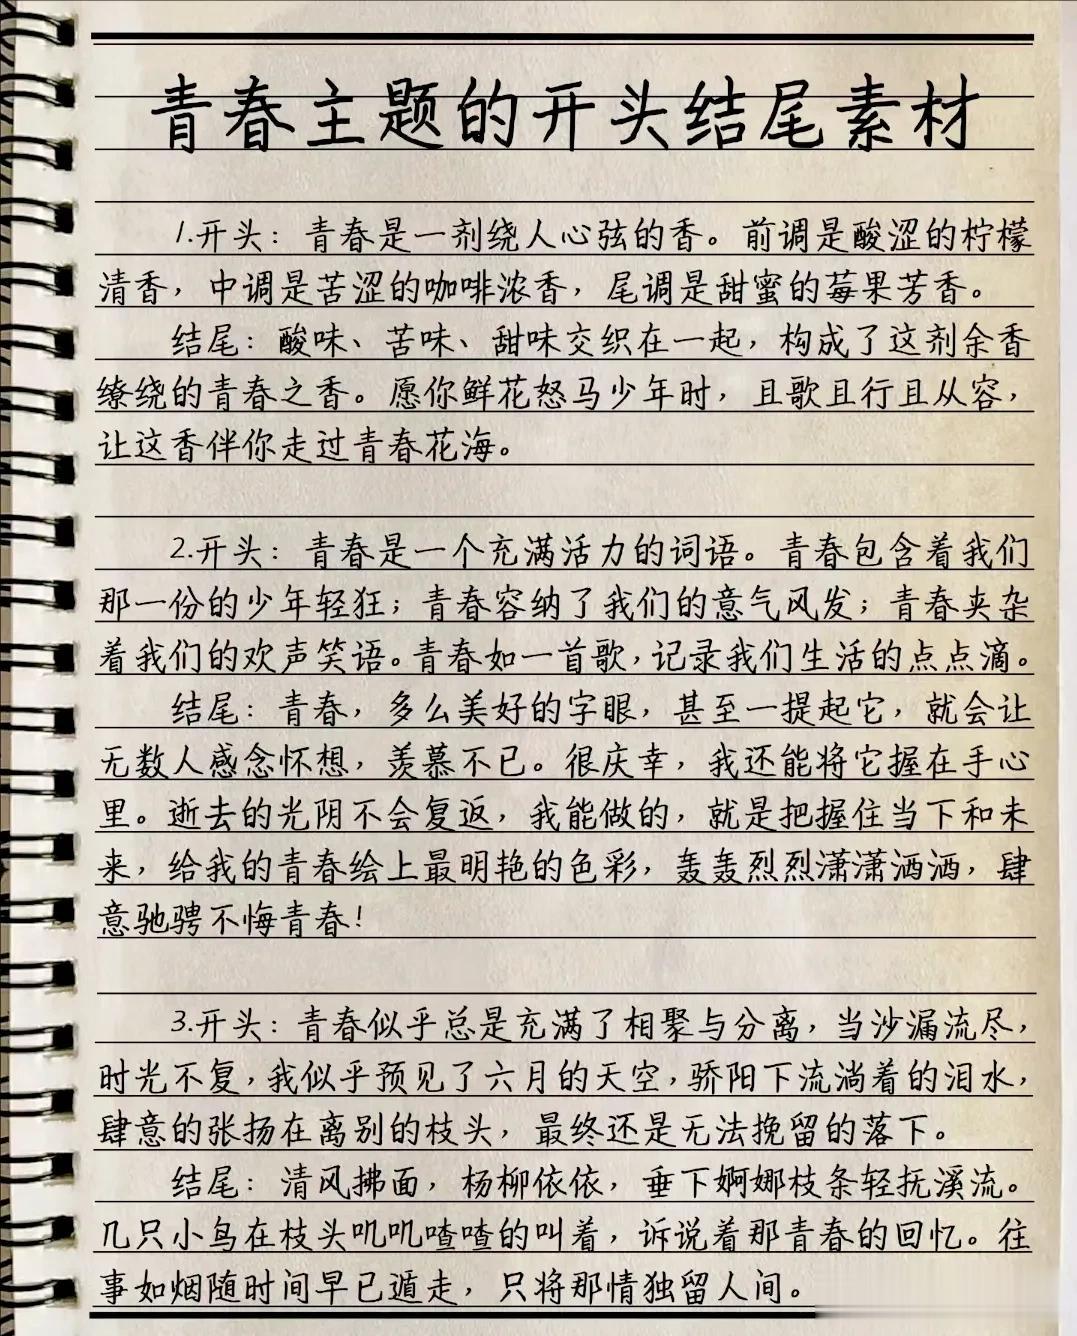 青春主题的开头结尾素材
1.开头：青春是一剂绕人心弦的香。前调是酸涩的柠檬
清香，中调是苦涩的咖啡浓香，尾调是甜蜜的莓果芳香。
结尾：酸味、苦味、甜味交织在一起，构成了这剂余香
缭绕的青春之香。愿你鲜花怒马少年时，且歌且行且从容，
让这香伴你走过青春花海。
2.开头：青春是一个充满活力的词语。青春包含着我们
那一份的少年轻狂；青春容纳了我们的意气风发；青春夹杂
着我们的欢声笑语。青春如一首歌，记录我们生活的点点滴。
结尾：青春，多么美好的字眼，甚至一提起它，就会让
无数人感念怀想，羡慕不已。很庆幸，我还能将它握在手心
里。逝去的光阴不会复返，我能做的，就是把握住当下和未
来，给我的青春绘上最明艳的色彩，轰轰烈烈潇潇洒洒，肆
意驰骋不悔青春！
3.开头：青春似乎总是充满了相聚与分离，当沙漏流尽，
时光不复，我似乎预见了六月的天空，骄阳下流淌着的泪水，
肆意的张扬在离别的枝头，最终还是无法挽留的落下。
结尾：清风拂面，杨柳依依，垂下婀娜枝条轻抚溪流。
几只小鸟在枝头叽叽喳喳的叫着，诉说着那青春的回忆。往
事如烟随时间早已遁走，只将那情独留人间。